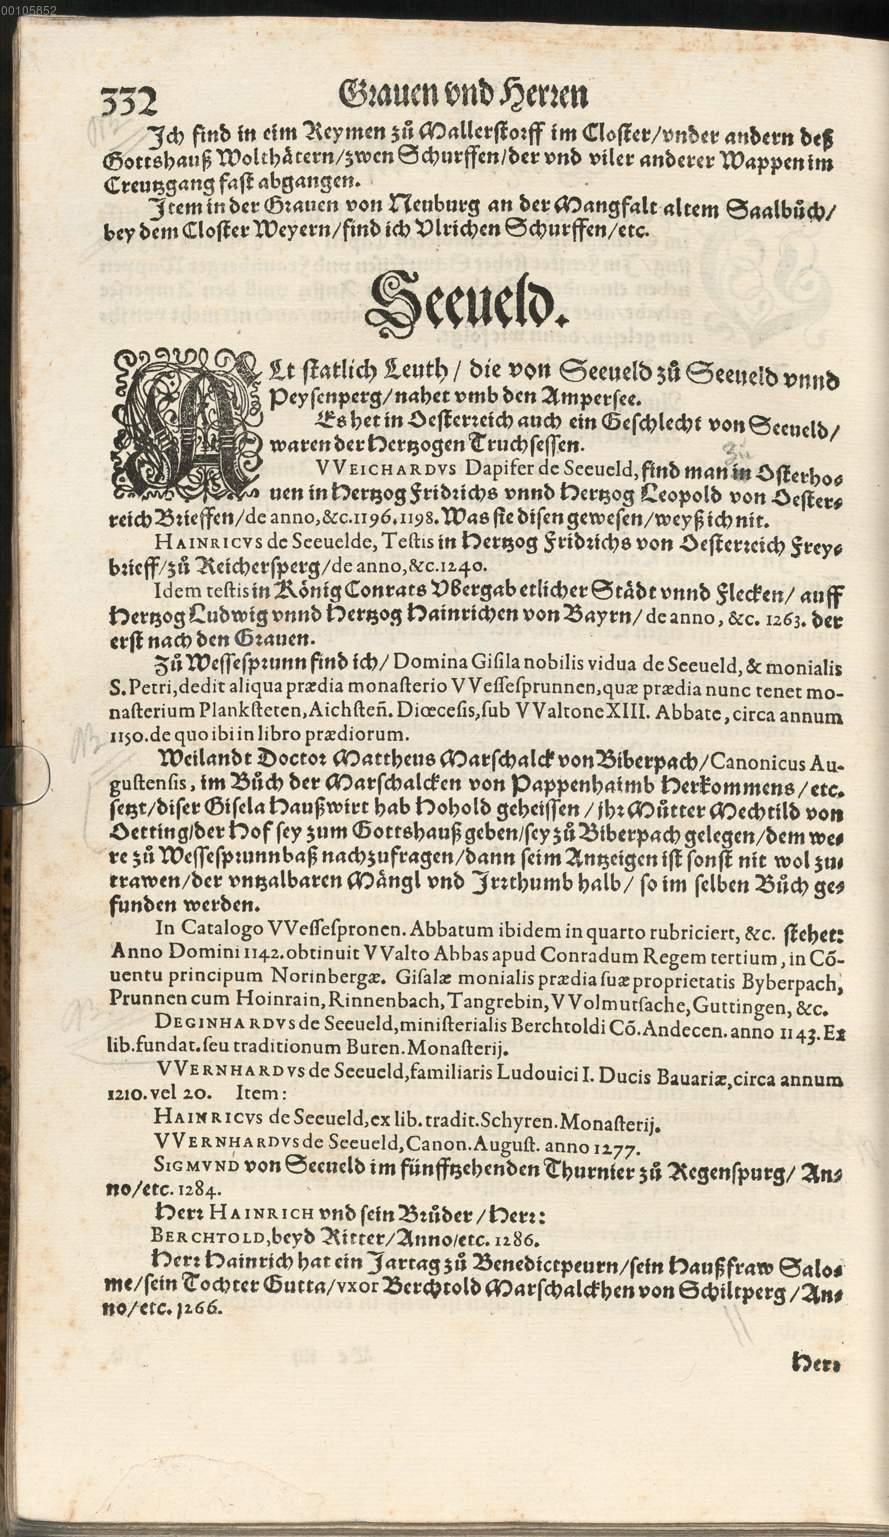 00105852
332 Grauen vnd Herren
Ich find in eim Reymen zů Mallerstorff im Closter/vnder andern deß
Gottshauß Wolthätern/zwen Schurffen/der vnd viler anderer Wappen im
Creutzgang fast abgangen.
Item in der Grauen von Neuburg an der Mangfalt altem Saalbůch/
bey dem Closter Weyern/find ich Vlrichen Schurffen/etc.
Seeueld.
ALt statlich Leuth/ die von Seeueld zů Seeueld vnnd
Peysenperg/nahet vmb den Ampersee.
Es het in Oesterreich auch ein Geschlecht von Seeueld/
waren der Hertzogen Truchsessen.
VVEICHARDVS Dapifer de Seeueld, find man in Osterho-
uen in Hertzog Fridrichs vnnd Hertzog Leopold von Oester-
reich Brieffen/de anno,&c.1196.1198.Was sie disen gewesen/weyß ich nit.
HAINRICVS de Seeuelde, Testis in Hertzog Fridrichs von Oesterreich Frey-
brieff/zů Reichersperg/de anno,&c.1240.
Idem testis in König Conrats Vbergab etlicher Städt vnnd Flecken/ auff
Hertzog Ludwig vnnd Hertzog Hainrichen von Bayrn/ de anno, &c. 1263. der
erst nach den Grauen.
Zů Wessesprunn find ich/ Domina Gisila nobilis vidua de Seeueld, & monialis
S.Petri,dedit aliqua prædia monasterio VVessesprunnen,quæ prædia nunc tenet mo-
nasterium Planksteten,Aichsteñ. Diœcesis,sub VValtone XIII. Abbate,circa annum
1150.de quo ibi in libro prædiorum.
Weilandt Doctor Mattheus Marschalck von Biberpach/Canonicus Au-
gustensis, im Bůch der Marschalcken von Pappenhaimb Herkommens/etc.
setzt/diser Gisela Haußwirt hab Hohold geheissen/jhr Můtter Mechtild von
Oetting/der Hof sey zum Gottshauß geben/sey zů Biberpach gelegen/dem we-
re zů Wessesprunn baß nachzufragen/dann seim Antzeigen ist sonst nit wol zu-
trawen/der vntzalbaren Mängl vnd Irrthumb halb/ so im selben Bůch ge-
funden werden.
In Catalogo VVessespronen. Abbatum ibidem in quarto rubriciert, &c. stehet:
Anno Domini 1142.obtinuit VValto Abbas apud Conradum Regem tertium, in Cõ-
uentu principum Norinbergæ. Gisalæ monialis prædia suæ proprietatis Byberpach,
Prunnen cum Hoinrain, Rinnenbach, Tangrebin, VVolmutsache, Guttingen, &c.
DEGINHARDVS de Seeueld,ministerialis Berchtoldi Cõ.Andecen. anno 1143.Ex
lib.fundat.seu traditionum Buren.Monasterij.
VVERNHARDVS de Seeueld,familiaris Ludouici I. Ducis Bauariæ,circa annum
1210.vel 20. Item:
HAINRICVS de Seeueld,ex lib. tradit.Schyren.Monasterij.
VVERNHARDVS de Seeueld, Canon.August. anno 1277.
SIGMVND von Seeueld im fünfftzehenden Thurnier zů Regenspurg/ An-
no/etc. 1284.
Herr HAINRICH vnd sein Brůder/Herr:
BERCHTOLD,beyd Ritter/Anno/etc. 1286.
Herr Hainrich hat ein Jartag zů Benedictpeurn/sein Haußfraw Salo-
me/sein Tochter Gutta/vxor Berchtold Marschalckhen von Schiltperg/An-
no/etc. 1266.
Herr